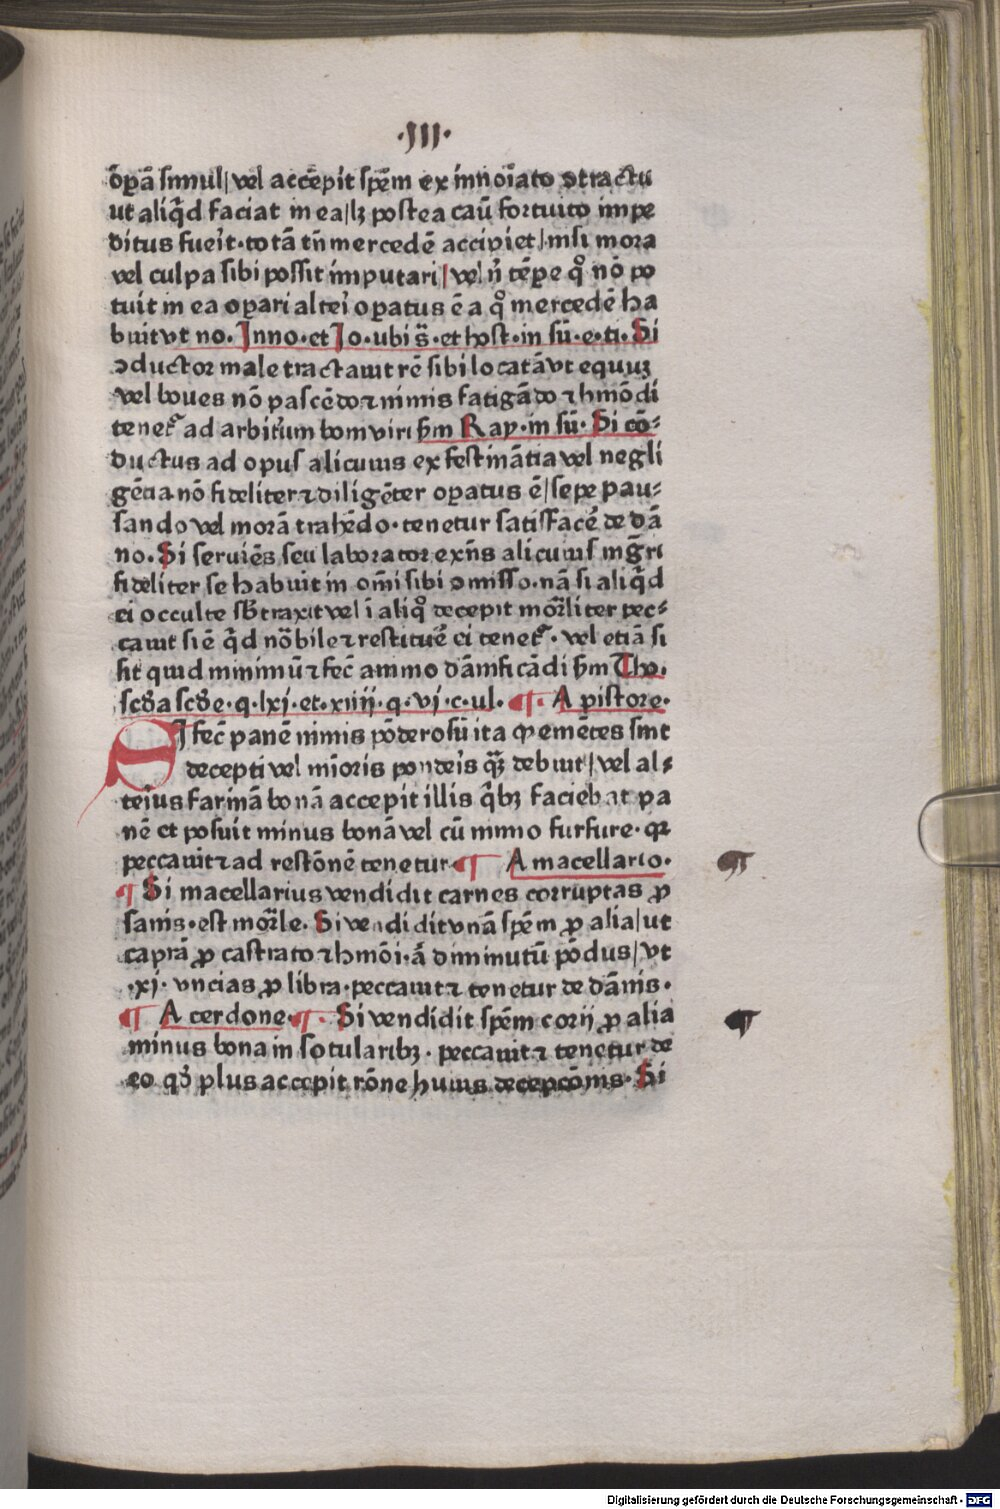 ·III·
op̄ā simul/vel accēpit spēm ex innoīato ↄtractu
ut aliq̄d faciat in ea/lꝫ postea caū fortuito impe
ditus fueīt·totā tn̄ mercedē accipiet/nisi mora
vel culpa sibi possit imputari/vel n̄ tēpe qͦ nō po
tuit in ea oꝑari alteī oꝑatus ē a qͦ mercedē ha
buit vt no. Inno·et Io·ubi s̄·et host·in sū·e·ti·Si
ↄductor male tractauit rē sibi locatā vt equuꝫ
vel boues nō pascēdo ⁊ nimis fatigādo ⁊ hmōdi
tenet᷑ ad arbitīum boni viri ẜm Ray·in sū· Si cō⸗
ductus ad opus alicuius ex festināția vel negli
gētia nō fideliter ⁊ diligēter oꝑatus ē/sepe pau⸗
sando vel morā trahēdo·tenetur satisfacē de dā
no. Si seruiēs seu laborator exn̄s alicuius mḡri
fideliter se habuit in om̄i sibi ↄmisso·nā si aliq̄d
ei occulte sb̄traxit vel ī aliqͦ decepit mor̄liter pec⸗
cauit si ē q̄d nōbile ⁊ restituē ei tenet᷑· vel etiā si
sit quid minimū ⁊ fec̄ animo dānificādi ẜm Tho.
scd̄a scd̄e·q·lxj·et·xiiij·q·vj·c·ul. ¶· A pistore·
SI fec̄ panē nimis pōderosū ita ꝙ emētes sint
decepti vel mīoris pondeīs qꝫ̄ debuit/vel al⸗
teīus farinā bonā accepit illis q̄bꝫ faciebat pa
nē et posuit minus bonā vel cū nimo furfure·qꝛ
peccauit ⁊ ad restōnē tenetur ¶ A macellario·
¶ Si macellarius vendidit carnes corruptas ꝓ
sanis·est mor̄le. Si vendidit vnā spēm ꝓ alia/ut
caprā ꝓ castrato ⁊ hmōi·ā diminutū pōdus/vt
·xj· vncias ꝓ libra·peccauit ⁊ tenetur de dānis·
¶ A cerdone·¶· Si vendidit spēm corij ꝓ alia
minus bona in sotularibꝫ· peccauit ⁊ tenetur de
eo qd̄ plus accepit rōne huius decepcōnis·Si
Digitalisierung gefördert durch die Deutsche Forschungsgemeinschaft · DFG